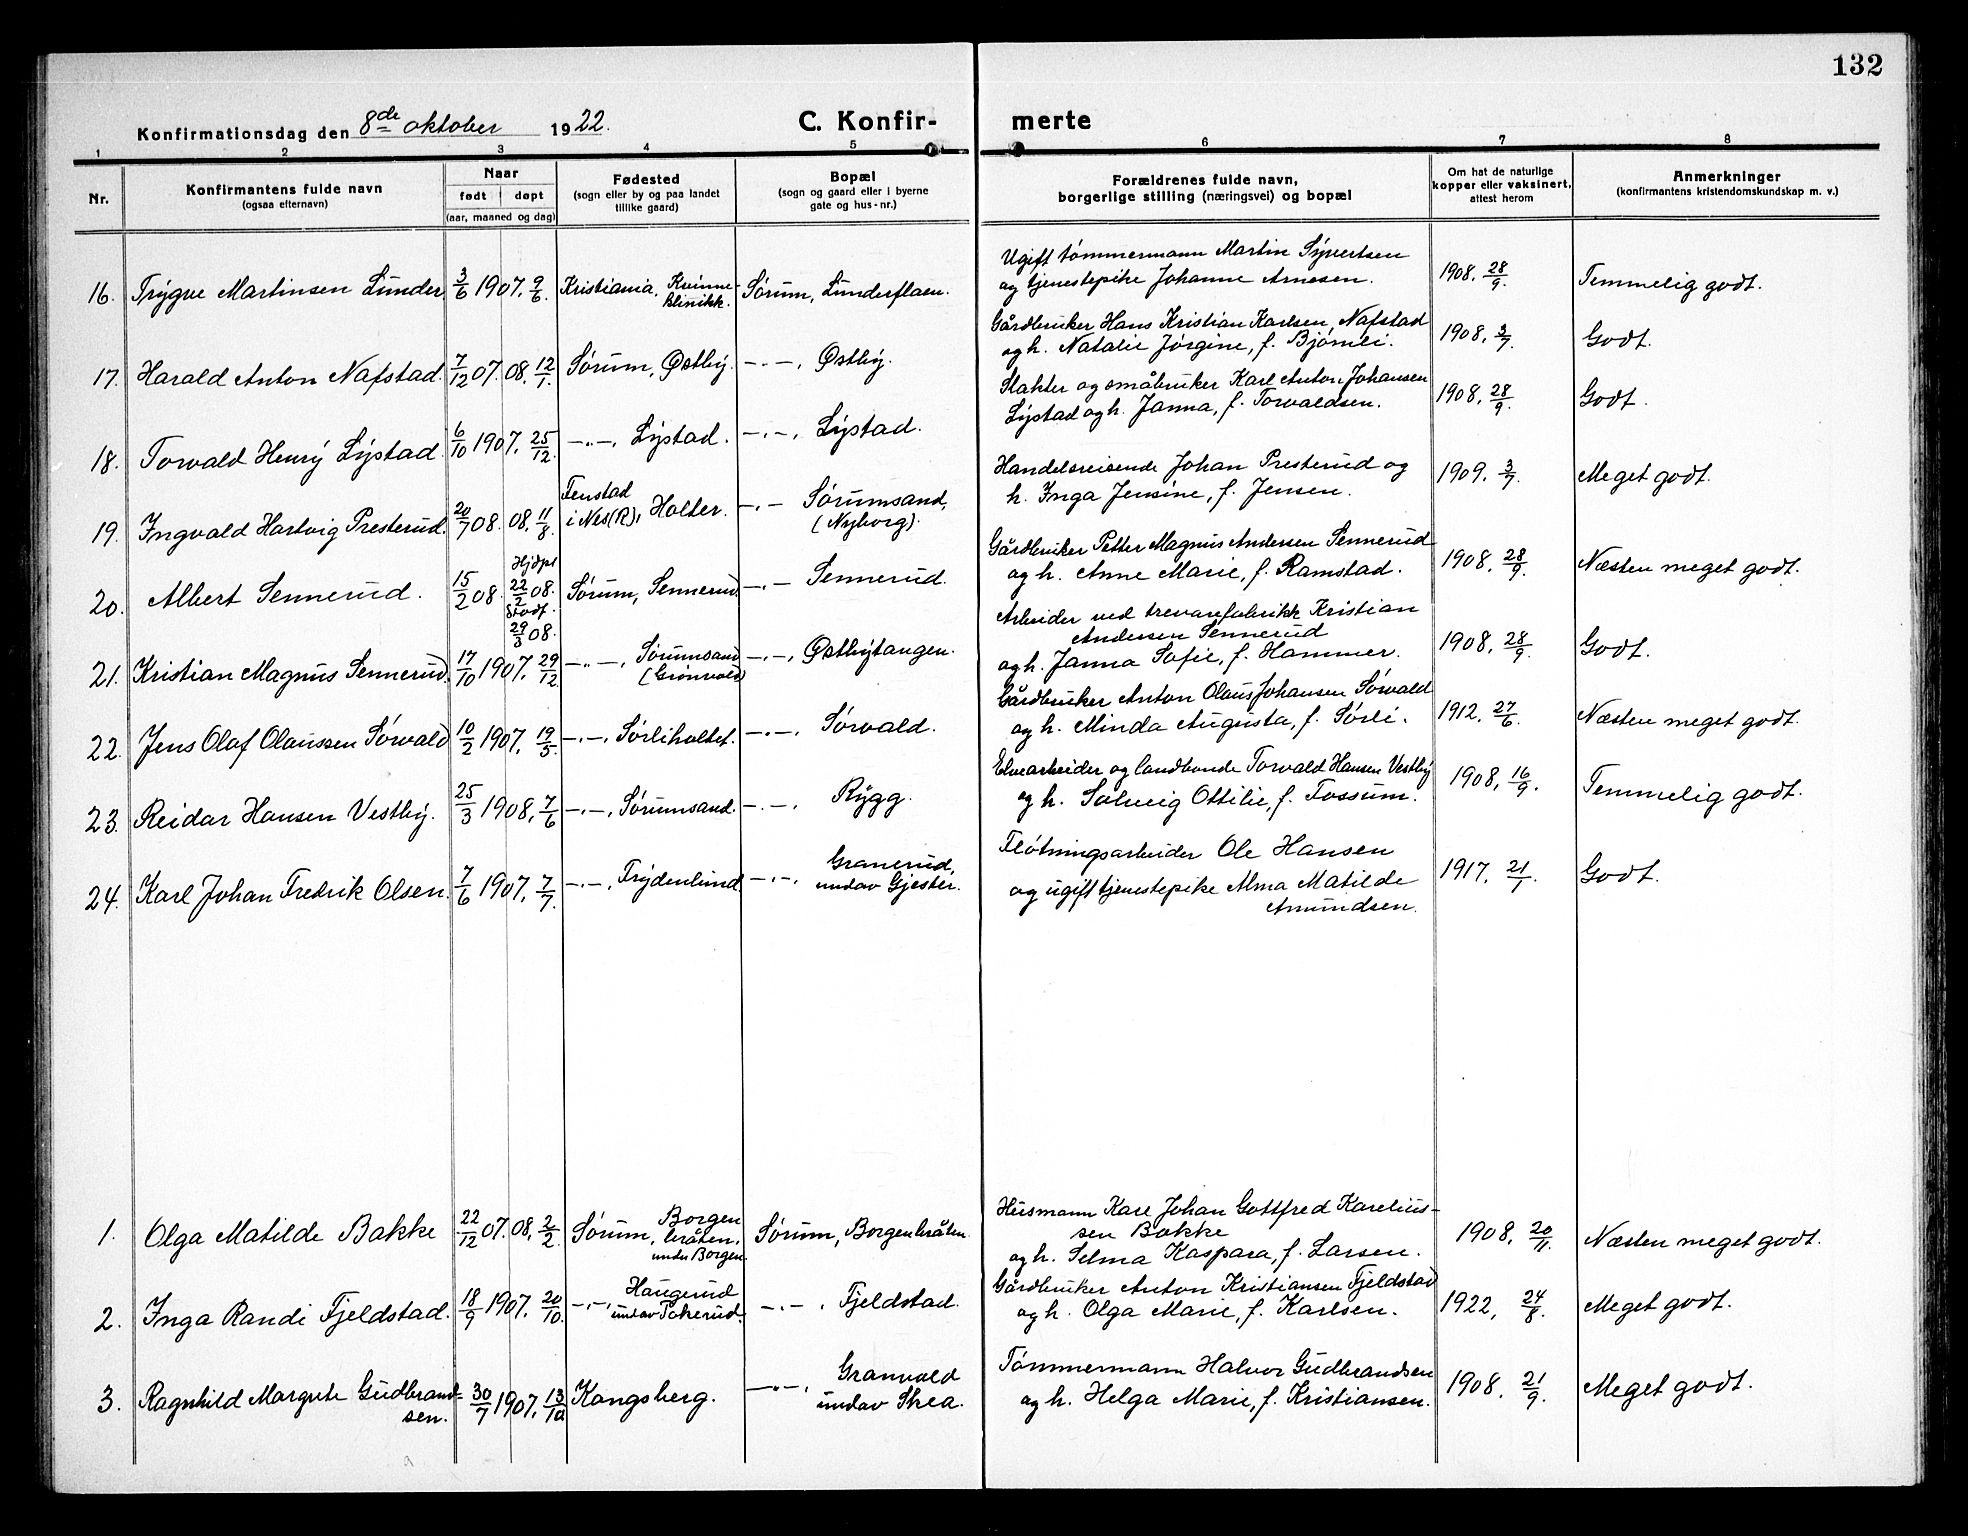 132
Konfirmationsdag den 8de oktober 1922.
C. Konfir-merte
1 2 3 4 5 6 7 8
Nr.
Konfirmantens fulde navn
(ogsaa efternavn)
Naar
født døpt
(aar, maaned og dag)
Fødested
(sogn eller by og paa landet
tillike gaard)
Bopæl
(sogn og gaard eller i byerne
gate og hus-nr.)
Forældrenes fulde navn,
borgerlige stilling (næringsvei) og bopæl
Om hat de naturlige
kopper eller vaksinert,
attest herom
Anmerkninger
(konfirmantens kristendomskundskap m. v.)
16. Trygve Martinsen Lunder 3/6 1907. 9/6. Kristiania, Kvinne-klinikk. Sørum, Lunderflaen.
Ugift tømmermann Martin Syvertsen
og tjenestepike Johanne Arnesen.
1908. 28/9. Temmelig godt.
17. Harald Anton Nafstad. 7/12 07. 08. 12/1. Sørum, Østby. -"-, Østby.
Gårdbruker Hans Kristian Karlsen Nafstad
og h. Natalie Jørgine, f. Bjømli.
1908. 3/7. Godt.
18. Torvald Henry Lystad 6/10 1907. 25/12. -"-, Lystad. -"-, Lystad.
Slakter og småbruker Karl Anton Johansen
Lystad og h. Janna, f. Torvaldsen.
1908. 28/9. Godt.
19. Ingvald Hartvig Presterud. 20/7 08. 08. 11/8. Fenstad
i Nes (R), Holter. -"- Sørumsand,
(Nyborg).
Handelsreisende Johan Presterud og
h. Inga Jensine, f. Jensen.
1909. 3/7. Meget godt.
20. Albert Sennerud. 15/2 08. Hjdpt
22/2 08.
Stadf.
29/3 08.
Sørum, Sennerud. -"- Sennerud.
Gårdbruker Petter Magnus Andersen Sennerud
og h. Anne Marie, f. Ramstad.
1908. 28/9. Næsten meget godt.
21. Kristian Magnus Sennerud. 17/10 1907. 29/12. -"-, Sørumsand
(Grønvold) -"-, Østbytangen.
Arbeider ved trevarefabrikk Kristian
Andersen Sennerud
og h. Janna Sofie, f. Hammer.
1908. 28/9. Godt.
22. Jens Olaf Olaussen Sørvald 10/2 1907. 19/5. -"-, Sørliholtet. -"-, Sørvald.
Gårdbruker Anton Olaus Johansen Sørvald
og h. Minda Augusta, f. Sørli.
1912. 27/6. Næsten meget godt.
23. Reidar Hansen Vestby. 25/3 1908. 7/6 -"-, Sørumsand. -"-, Rygg.
Elvearbeider og landbonde Torvald Hansen Vestby
og h. Solveig Ottilie, f. Fossum.
1908. 16/9. Temmelig godt.
24. Karl Johan Fredrik Olsen. 7/6 1907. 7/7. -"-, Frydenlund -"-, Granerud,
undav Gjester.
Fløtningsarbeider Ole Hansen
og ugift tjenestepike Alma Matilde
Amundsen.
1917. 21/1. Godt.
1. Olga Matilde Bakke 22/12 07. 08. 2/2 Sørum, Borgen
bråten,
under Borgen. Sørum, Borgenbråten.
Husmann Karl Johan Gottfred Karelius-
sen Bakke
og h. Selma Kaspara, f. Larsen.
1908. 20/11. Næsten meget godt.
2. Inga Randi Fjeldstad. 18/9 1907. 20/10. -"-, Haugerud
undav Tokerud. -"-, Fjeldstad.
Gårdbruker Anton Kristiansen Fjeldstad
og h. Olga Marie, f. Karlsen.
1922, 24/8. Meget godt.
3. Ragnhild Margrete Gudbrand-
sen. 30/7 1907. 13/10 Kongsberg. -"-, Granvold
undav Skea.
Tømmermann Halvor Gudbrandsen
og h. Helga Marie, f. Kristiansen.
1908. 21/9. Meget godt.